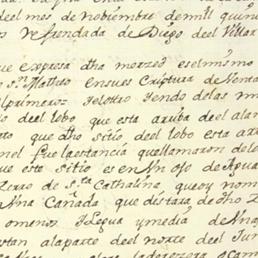 deel mes de nobiembre de mill quini
Refrendada de Diego deel Villar
que expresa dha merzed es el mismo
Sn. Matheo en su escriptura de Venta
el primero: Yelotro Yendo de las m
o deel lobo que esta arriba deel ala
to que dho sitio deel lo esta arr
nel fue la estancia que llamaron de l
que este sitio es en Un ojo de Agua
Zerro de Sta. Cathalina, que oy nom
Una Cañada que distara de dho Z
omenos Y legua y media de Una
estan a la parte del norte deel